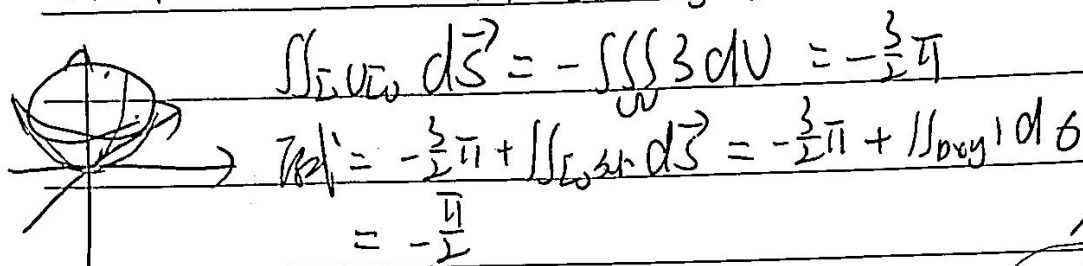 ∬_{Σ∪Σ₀} dS⃗ = -∭_ω 3dV = -3/2 π
原式 = -3/2 π + ∬_{Σ₀上} dS⃗ = -3/2 π + ∬_{Dxy} 1 dσ
= -π/2